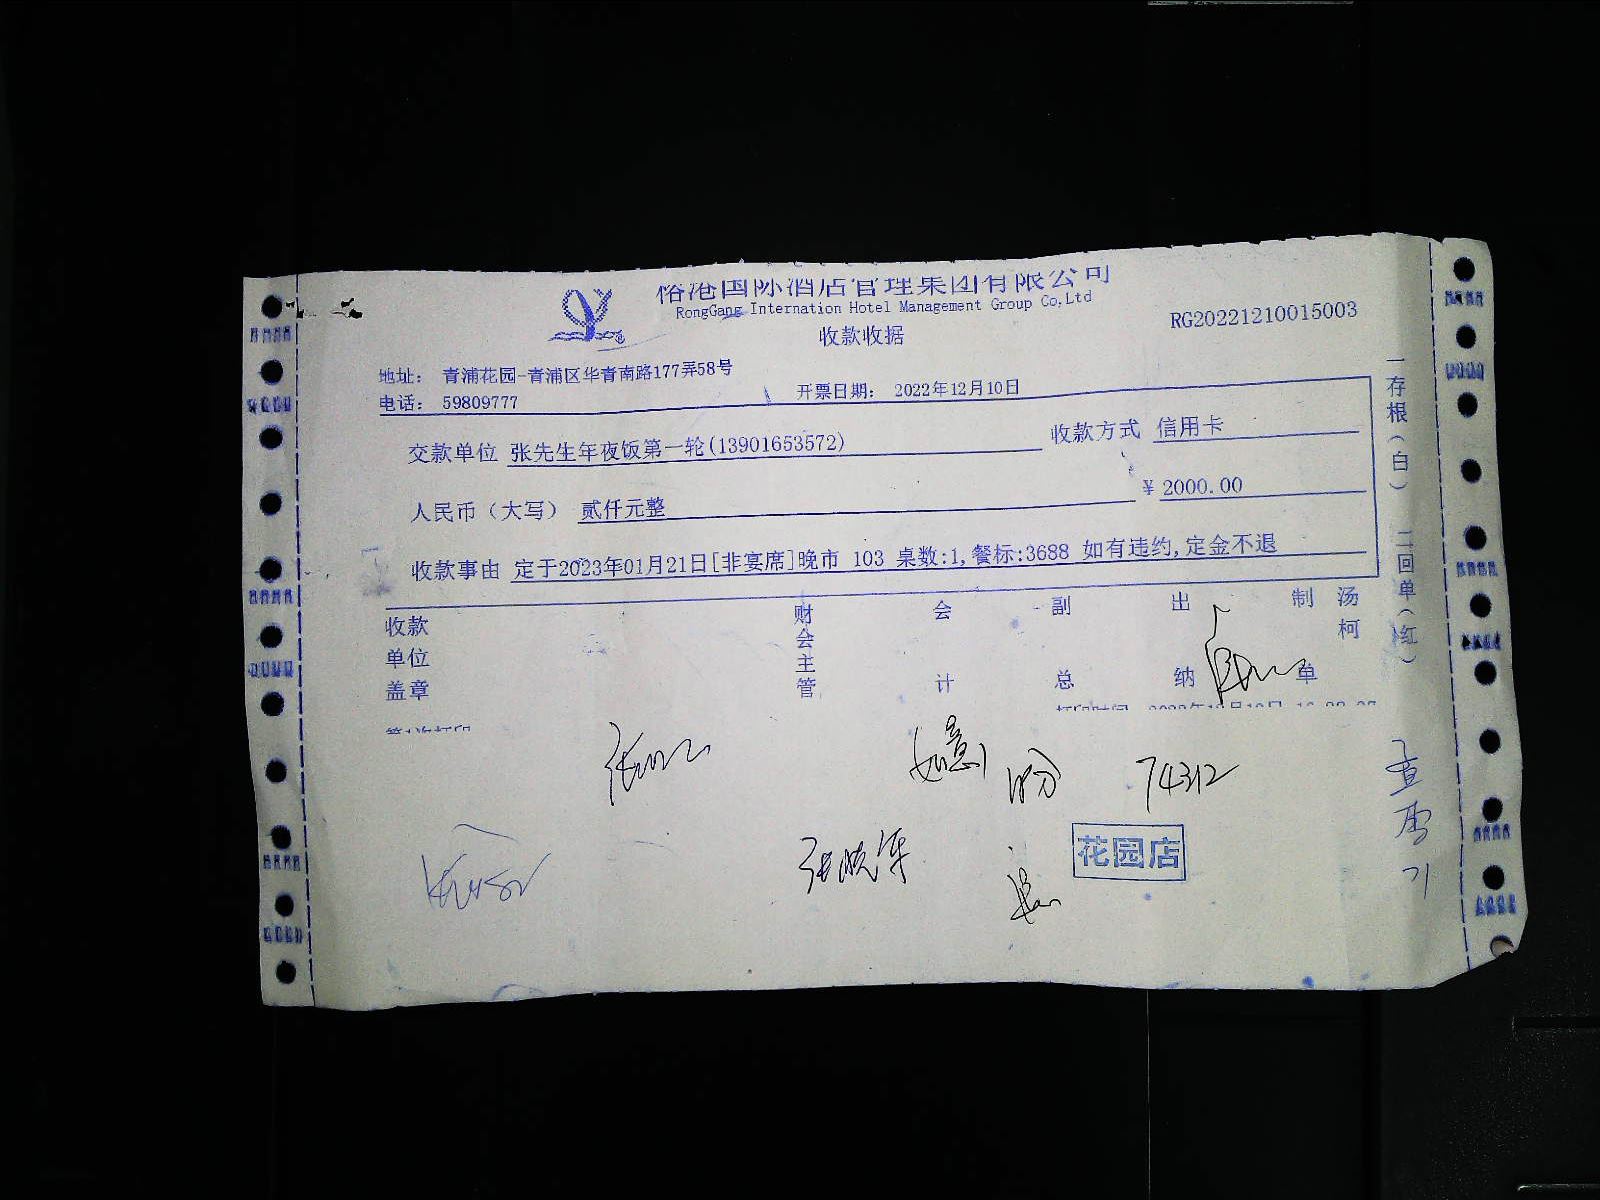 俗港国际酒店管理集团有限公司
RongGang Internation Hotel Management Group Co,Ltd
收款收据
RG20221210015003
地址： 青浦花园-青浦区华青南路177弄58号
电话： 59809777
开票日期： 2022年12月10日
交款单位 张先生年夜饭第一轮(13901653572)
收款方式 信用卡
人民币（大写） 贰仟元整
￥ 2000.00
收款事由 定于2023年01月21日[非宴席]晚市 103 桌数:1,餐标:3688 如有违约,定金不退
收款单位盖章
财会主管
会计
副总
出纳
制单
汤柯
一存根（白） 二回单（红）
第1次打印
如意
74312
张晓萍
花园店